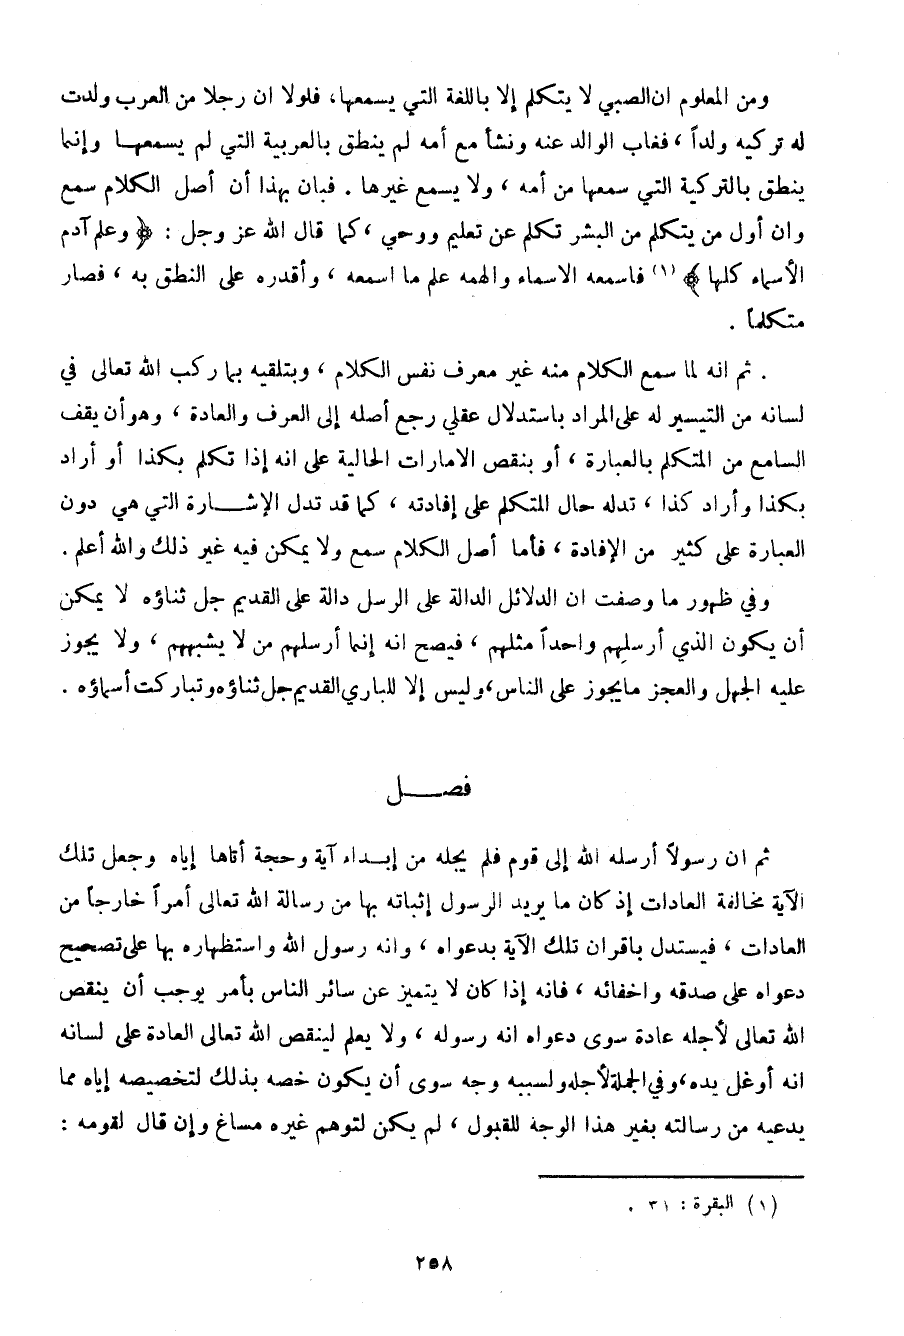 ومن المعلوم ان الصبي لا يتكلم إلا باللغة التي يسمعها، فلولا ان رجلا من العرب ولدت
له تركيه ولداً ، فغاب الوالد عنه ونشأ مع أمه لم ينطق بالعربية التي لم يسمعهـا وإنما
ينطق بالتركية التي سمعها من أمه ، ولا يسمع غيرها . فبان بهذا أن أصل الكلام سمع
وان أول من يتكلم من البشر تكلم عن تعليم ووحي ، كما قال الله عز وجل : ﴿ وعلم آدم
الأسماء كلها ﴾ (١) فاسمعه الاسماء والهمه علم ما اسمعه ، وأقدره على النطق به ، فصار
متكلماً .
. ثم انه لما سمع الكلام منه غير معرف نفس الكلام ، وبتلقيه بما ركب الله تعالى في
لسانه من التيسير له على المراد باستدلال عقلي رجع أصله إلى العرف والعادة ، وهو أن يقف
السامع من المتكلم بالعبارة ، أو بنقص الامارات الحالية على انه إذا تكلم بكذا أو أراد
بكذا وأراد كذا ، تدله حال المتكلم على إفادته ، كما قد تدل الإشـــارة التي هي دون
العبارة على كثير من الإفادة ، فأما أصل الكلام سمع ولا يمكن فيه غير ذلك والله أعلم .
وفي ظهور ما وصفت ان الدلائل الدالة على الرسل دالة على القديم جل ثناؤه لا يمكن
أن يكون الذي أرسلهم واحداً مثلهم ، فيصح انه إنما أرسلهم من لا يشبههم ، ولا يجوز
عليه الجهل والعجز ما يجوز على الناس، وليس إلا للباري القديم جل ثناؤه وتباركت أسماؤه .
فصــــل
ثم ان رسولاً أرسله الله إلى قوم فلم يخله من إبـداء آية وحجة أتاها إياه وجعل تلك
الآية مخالفة العادات إذ كان ما يريد الرسول إثباته بها من رسالة الله تعالى أمراً خارجاً من
العادات ، فيستدل باقران تلك الآية بدعواه ، وانه رسول الله واستظهاره بها على تصحيح
دعواه على صدقه واخفائه ، فانه إذا كان لا يتميز عن سائر الناس بأمر يوجب أن ينقص
الله تعالى لأجله عادة سوى دعواه انه رسوله ، ولا يعلم لينقص الله تعالى العادة على لسانه
انه أو غل يده، وفي الجملة لأجله ولسببه وجه سوى أن يكون خصه بذلك لتخصيصه إياه مما
يدعيه من رسالته بغير هذا الوجه للقبول ، لم يكن لتوهم غيره مساغ وإن قال لقومه :
(١) البقرة : ٣١ .
٢٥٨